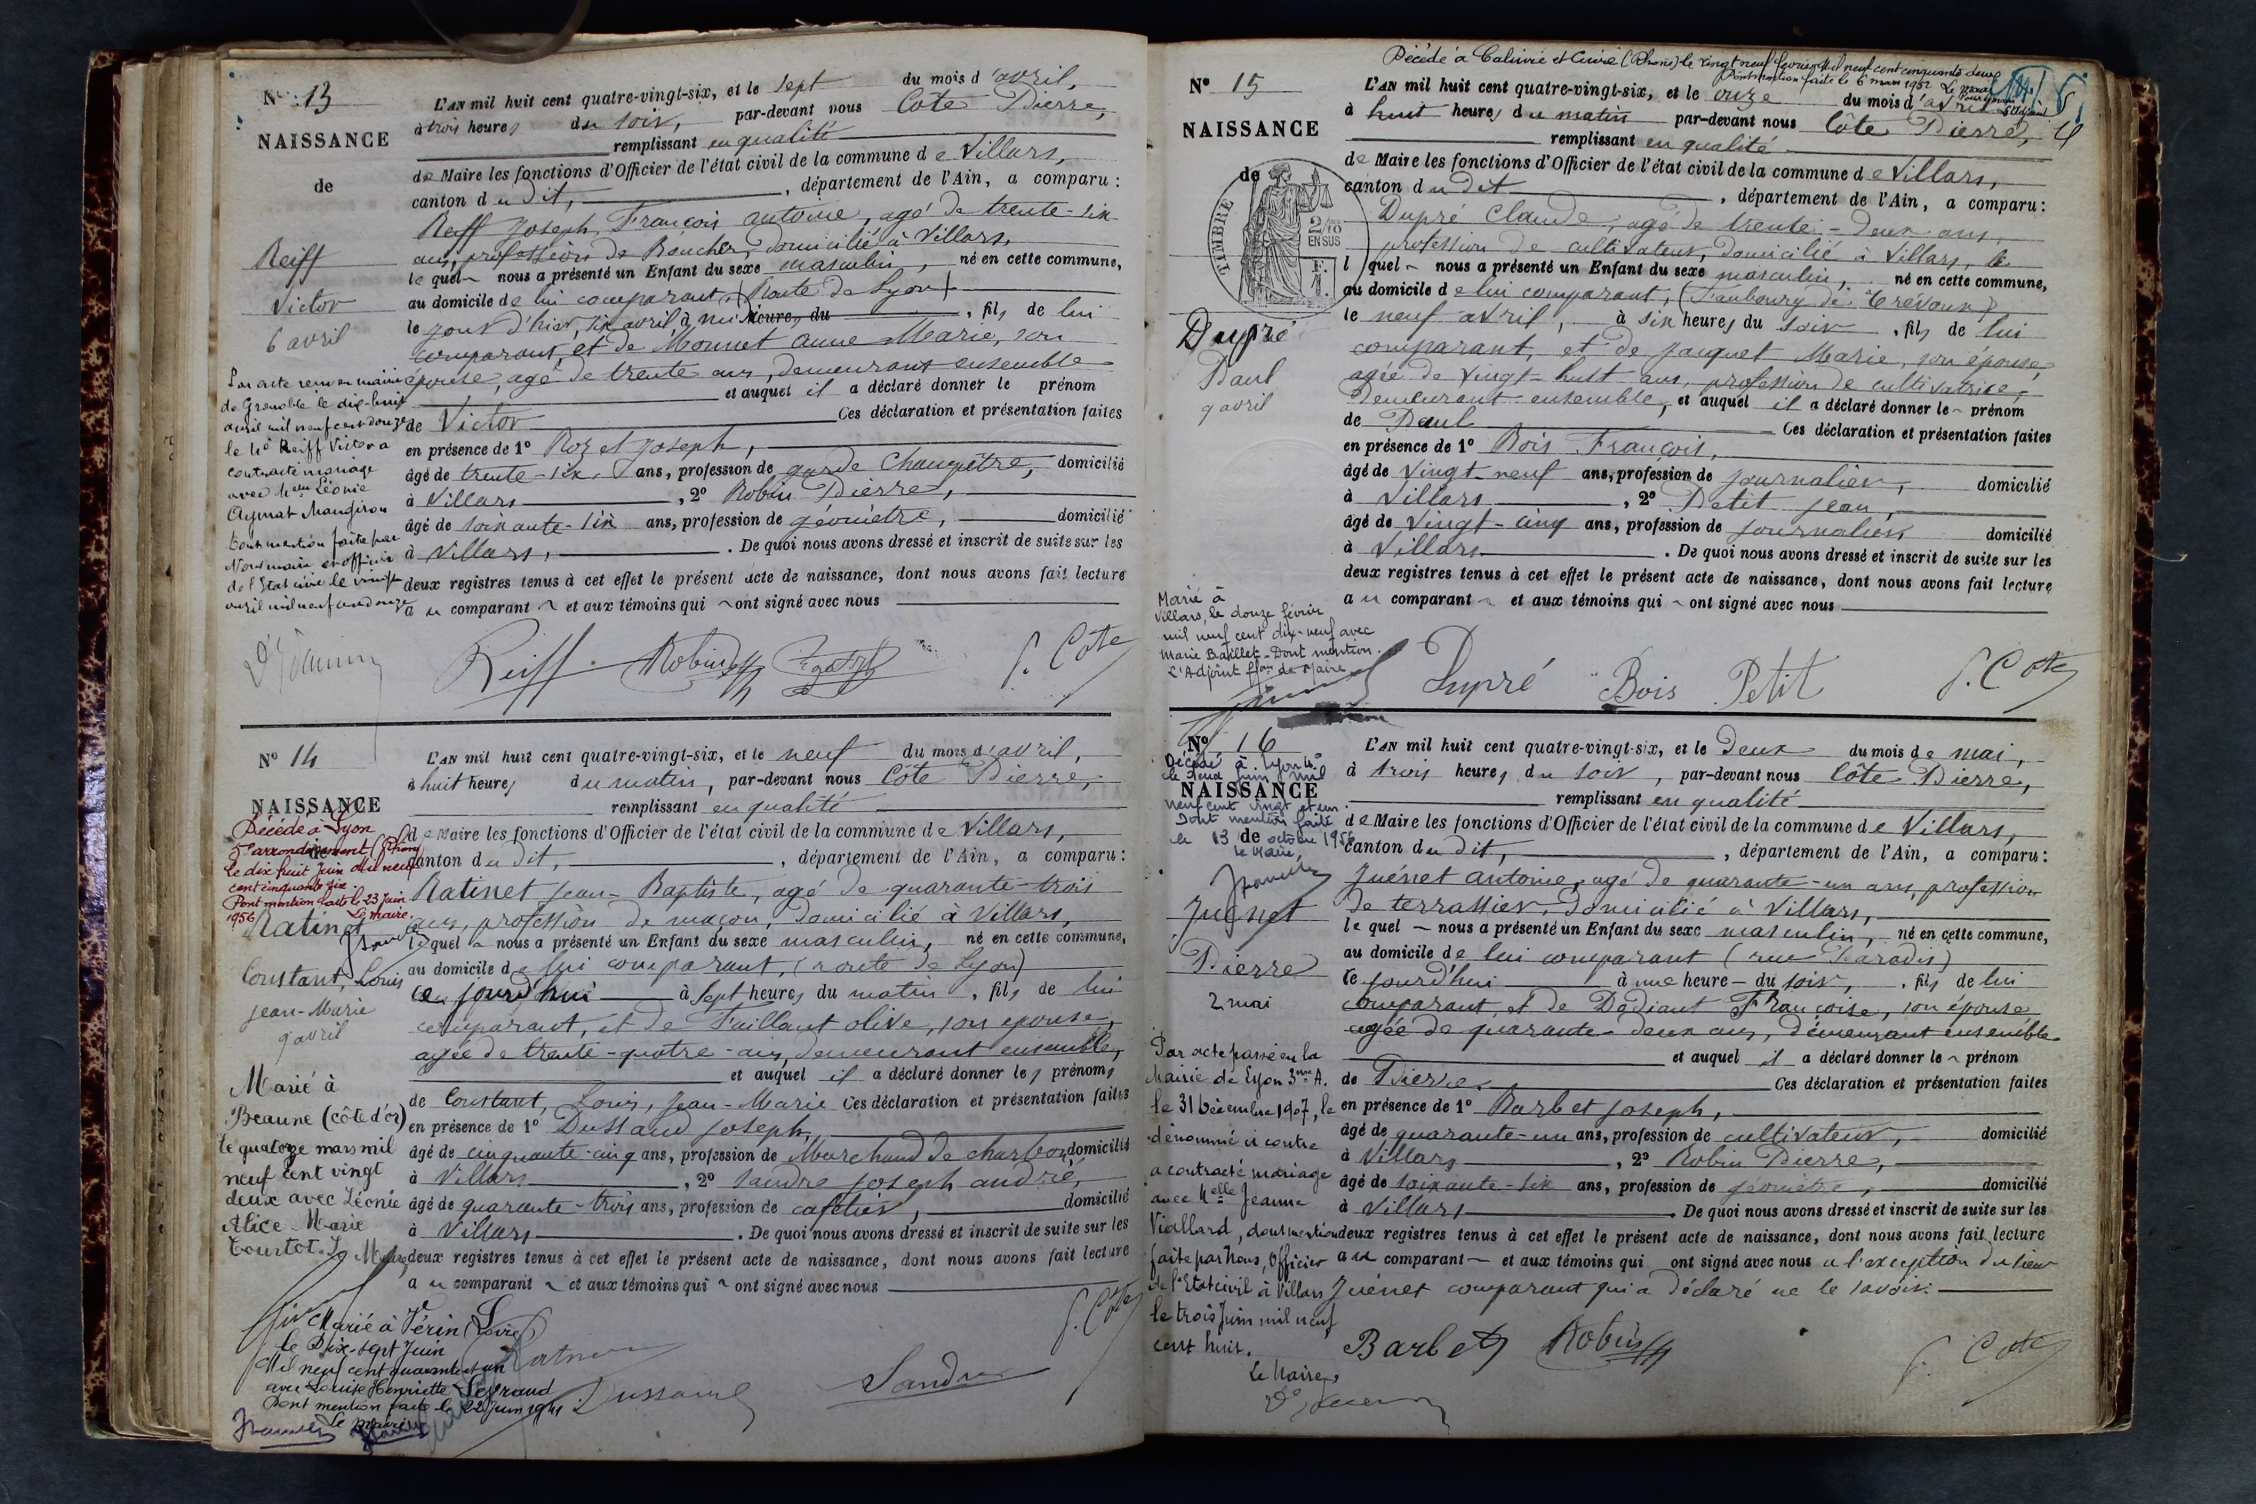 N° 13
NAISSANCE
de
Reiff
Victor
6 avril
Par acte reçu en mairie
de Grenoble le dix-huit
avril mil neuf cent douze
le né Reiff Victor a
contracté mariage
avec Melle Léonie
Aymat Maugiron
Dont mention faite par
Nous maire et officier
de l'Etat civil le vingt
avril mil neuf cent douze
L'AN mil huit cent quatre-vingt-six, et le sept du mois d'avril,
à trois heures du soir, par-devant nous Côte Pierre,
remplissant en qualité
de Maire les fonctions d'Officier de l'état civil de la commune de Villars,
canton du dit, , département de l'Ain, a comparu :
Reiff Joseph, François antoine, agé de trente-six
ans, profession de Boucher, domicilié à Villars,
le quel nous a présenté un Enfant du sexe masculin, né en cette commune,
au domicile de lui comparant, (Route de Lyon)
le jour d'hier, six avril, à heures du , fils de lui
comparant, et de Monnet anne Marie, son
épouse, agé de trente ans, demeurant ensemble
et auquel il a déclaré donner le prénom
de Victor Ces déclaration et présentation faites
en présence de 1° Roz et Joseph,
âgé de trente-six ans, profession de garde Champêtre, domicilié
à Villars , 2° Robin Pierre,
âgé de soixante-six ans, profession de géomètre, domicilié
à Villars, . De quoi nous avons dressé et inscrit de suite sur les
deux registres tenus à cet effet le présent acte de naissance, dont nous avons fait lecture
au comparant et aux témoins qui ont signé avec nous
Reiff Robin P. Côte
N° 14
NAISSANCE
de
Décédé à Lyon
5e arrondissement (Rhône)
le dix huit Juin Mil neuf
cent cinquante six
Dont mention faite le 23 Juin
1956 Le Maire.
Ratinet
Constant, Louis
Jean-Marie
9 avril
Marié à
Beaune (côte d'or)
le quatorze mars mil
neuf cent vingt
deux avec Léonie
Alice-Marie
Tourtot.
L'AN mil huit cent quatre-vingt-six, et le neuf du mois d'avril,
à huit heures du matin, par-devant nous Côte Pierre,
remplissant en qualité
de Maire les fonctions d'Officier de l'état civil de la commune de Villars,
canton du dit, , département de l'Ain, a comparu :
Ratinet Jean-Baptiste, agé de quarante-trois
ans, profession de maçon, domicilié à Villars,
le quel nous a présenté un Enfant du sexe masculin, né en cette commune,
au domicile de lui comparant, (route de Lyon)
ce jourd'hui à sept heures du matin, fils de lui
comparant, et de Faillant olive, son epouse,
agée de trente-quatre ans, demeurant ensemble,
et auquel il a déclaré donner les prénoms
de Constant, Louis, Jean-Marie Ces déclaration et présentation faites
en présence de 1° Dussaud Joseph,
âgé de cinquante-cinq ans, profession de Marchand de charbon, domicilié
à Villars , 2° Sandre Joseph andré,
âgé de quarante-trois ans, profession de cafetier, domicilié
à Villars . De quoi nous avons dressé et inscrit de suite sur les
deux registres tenus à cet effet le présent acte de naissance, dont nous avons fait lecture
au comparant et aux témoins qui ont signé avec nous
P. Côte
Marié à Vérin (Loire)
le Dix-sept Juin
Mil neuf cent quarante et un
avec Louise Henriette Leyraud
Dont mention faite le 22 Juin 1941
Le Maire
Ratinet Dussaud Sandre
Décédé à Caluire et Cuire (Rhône) le vingt neuf février Mil neuf cent cinquante deux
Dont mention faite le 6 mars 1952 Le Maire
N° 15
NAISSANCE
de
TIMBRE
2/10
EN SUS
F.
Dupré
Paul
9 avril
Marié à
Villars, le douze février
mil neuf cent dix-neuf avec
Marie Baillet - Dont mention.
L'Adjoint ffon de Maire
L'AN mil huit cent quatre-vingt-six, et le onze du mois d'avril
à huit heures du matin par-devant nous Côte Pierre,
remplissant en qualité
de Maire les fonctions d'Officier de l'état civil de la commune de Villars,
canton du dit , département de l'Ain, a comparu :
Dupré Claude, agé de trente-deux ans,
profession de cultivateur, domicilié à Villars, le
quel nous a présenté un Enfant du sexe masculin, né en cette commune,
au domicile de lui comparant, (Faubourg de Trévoux)
le neuf avril, à six heures du soir , fils de lui
comparant, et de Jauquet Marie, son épouse,
agée de vingt-huit ans, profession de cultivatrice,
Demeurant ensemble, et auquel il a déclaré donner le prénom
de Paul Ces déclaration et présentation faites
en présence de 1° Bois François,
âgé de vingt-neuf ans, profession de journalier, domicilié
à Villars , 2° Petit Jean,
âgé de vingt-cinq ans, profession de journalier domicilié
à Villars . De quoi nous avons dressé et inscrit de suite sur les
deux registres tenus à cet effet le présent acte de naissance, dont nous avons fait lecture
au comparant et aux témoins qui ont signé avec nous
Dupré Bois Petit P. Côte
N° 16
Décédé à Lyon 4e
le deux juin mil
NAISSANCE
neuf cent vingt et un.
Dont mention faite
le 13 octobre 1956
de
Le Maire,
Juénet
Pierre
2 mai
Par acte passé en la
Mairie de Lyon 3me A.
le 31 Décembre 1907, le
dénommé ci contre
a contracté mariage
avec Melle Jeanne
Viallard, dont mention
faite par Nous, Officier
de l'Etat civil à Villars
le trois Juin mil neuf
cent huit.
Le Maire,
L'AN mil huit cent quatre-vingt-six, et le Deux du mois de mai,
à trois heures du soir, par-devant nous Côte Pierre,
remplissant en qualité
de Maire les fonctions d'Officier de l'état civil de la commune de Villars,
canton du dit, , département de l'Ain, a comparu :
Juénet antoine, agé de quarante-un ans, profession
de terrassier, domicilié à Villars,
le quel nous a présenté un Enfant du sexe masculin, né en cette commune,
au domicile de lui comparant (rue Paradis)
ce jourd'hui à une heure du soir, , fils de lui
comparant, et de Dodiant Françoise, son épouse
agée de quarante-deux ans, demeurant ensemble
et auquel il a déclaré donner le prénom
de Pierre. Ces déclaration et présentation faites
en présence de 1° Barbet Joseph,
âgé de quarante-un ans, profession de cultivateur, domicilié
à Villars , 2° Robin Pierre,
âgé de soixante-six ans, profession de géomètre, domicilié
à Villars . De quoi nous avons dressé et inscrit de suite sur les
deux registres tenus à cet effet le présent acte de naissance, dont nous avons fait lecture
au comparant et aux témoins qui ont signé avec nous a l'exception du sieur
Juénet comparant qui a déclaré ne le savoir.
Barbet Robin P. Côte